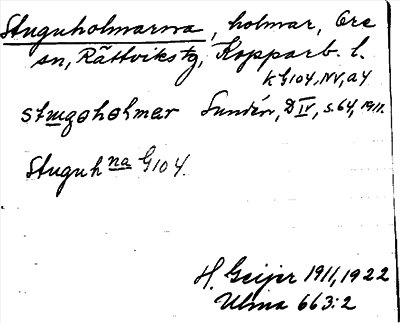 Stuguholmarna, holmar, Ore
sn, Rättviks tg, Kopparb. l.
k G104, NV, a4
stugoholmar Sundén, D IV, s. 64, 1911.
Stuguhna G104.
H. Geijer 1911, 1922
Ulma 663:2